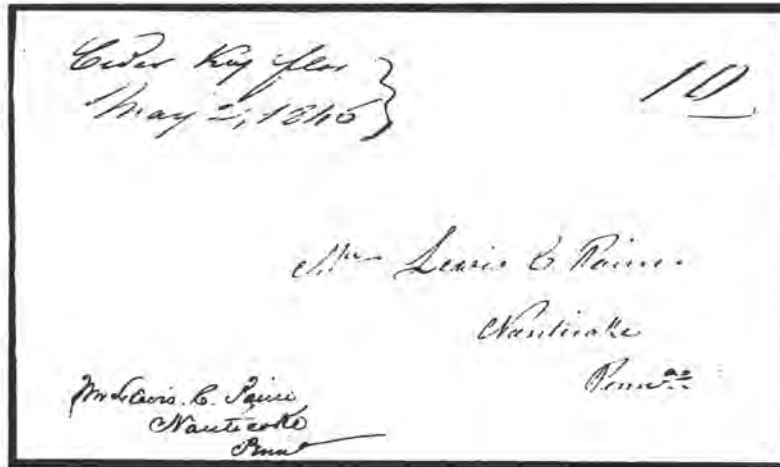 Ceder Key flor
May 2, 1846
10
Mr Lewis C Paine
Nanticoke
Penn
Mr Lewis. C. Paine
Nanticoke
Penn